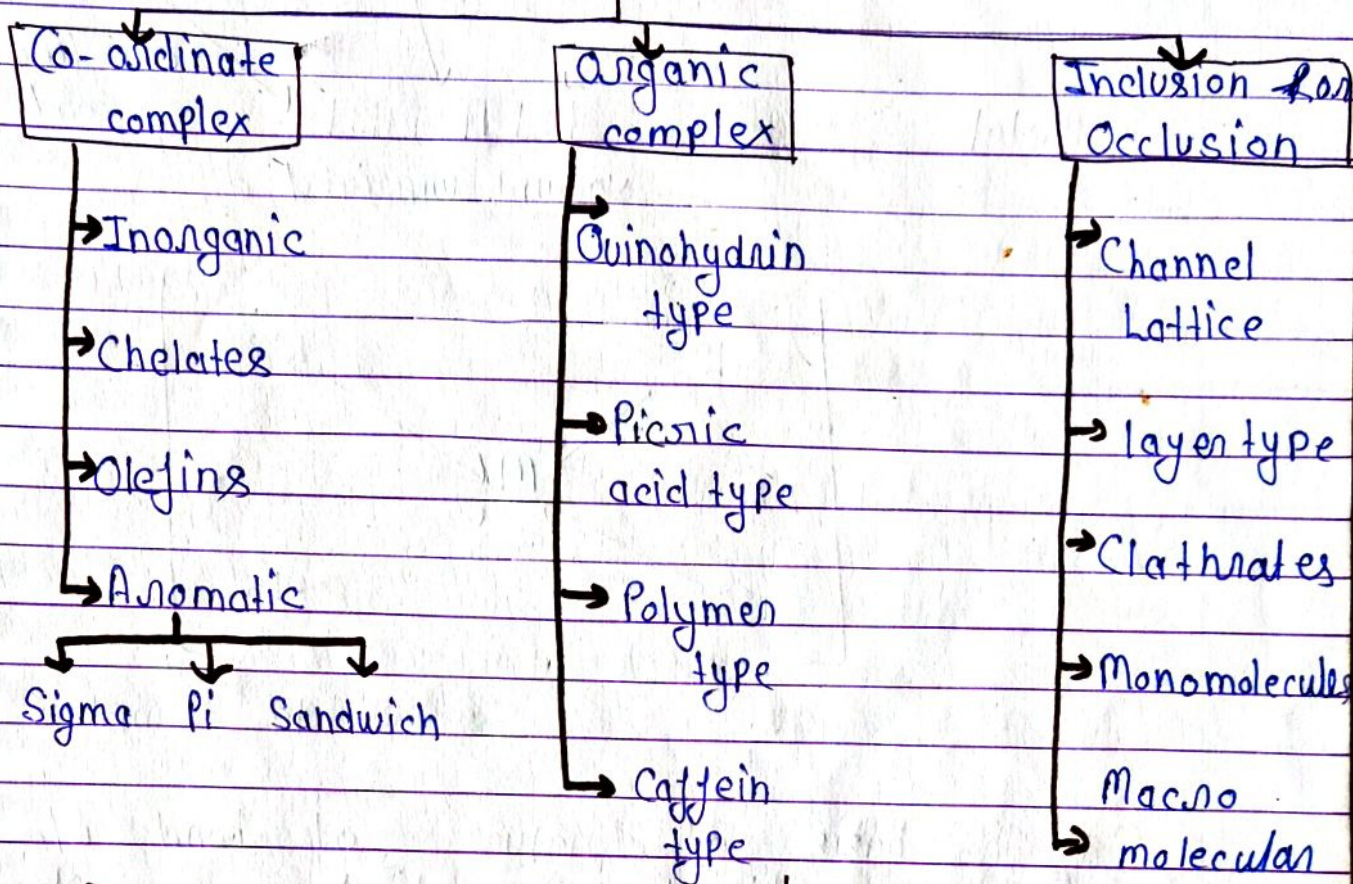 Co-ordinate
complex
Inorganic
Chelates
Olefins
Aromatic
Sigma Pi Sandwich
organic
complex
Quinohydrin
type
Picric
acid type
Polymer
type
Caffein
type
Inclusion
Occlusion
Channel
Lattice
layer type
Clathrates
Monomolecules
Macro
molecular